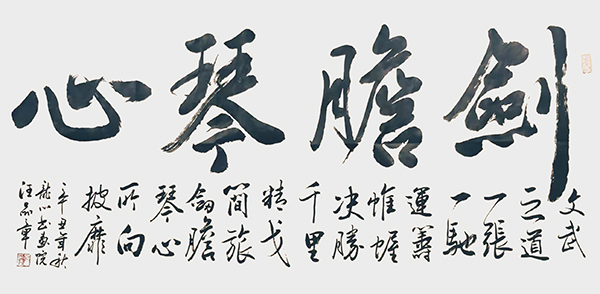 劍膽琴心
文武
之道
一張
一馳
運籌
帷幄
決勝
千里
精戈
簡旅
劍膽
琴心
所向
披靡
辛丑年秋
龍心書画院